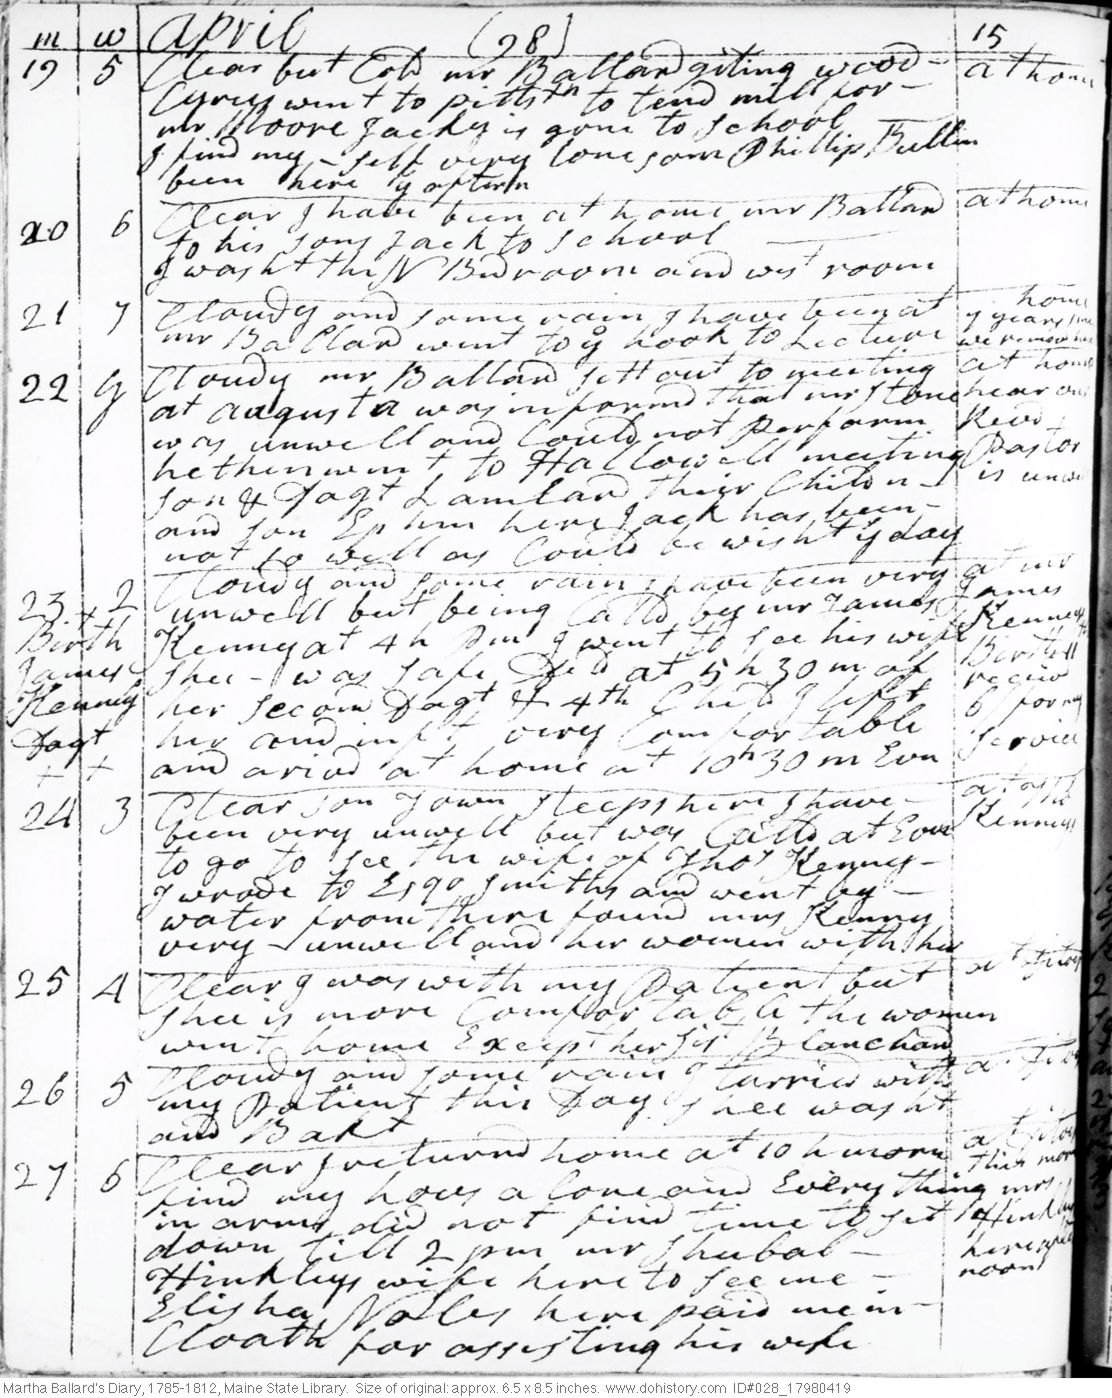 m w April (28) 15
19 5 Clear but Cold mr Ballard giting wood at home
Cyrus went to pittstn to tend mill for
mr Moore Jacky is gone to School
I find my self very lonesom Phillip Bullin
been here ye aftern
20 6 Clear I have been at home mr Ballard at home
to his sons Jack to School
I washt the N Bedroom and west room
21 7 Cloudy and some rain I have been at home
mr Ballard went to ye hook to Lecture 7 years sinc
we remov
22 G Cloudy mr Ballard sett out to meeting at home
at augusta was informd that mr Stone hear our
was unwell and Could not perform Revd
he then went to Hallowell meeting Pastor
son & Dagt Lambard their Childn is unwell
and son Ephm here Jack has been
not so well as Could be wisht ys day
23 2 Cloudy and some rain I have been very at mr
Birth unwell but being Calld by mr James James
James Kenny at 4 h pm I went to see his wife Kennys
Kennys shee was safe Dld at 5 h 30 m of Birth
Dagt her secon Dagt & 4th Child I left receivd
her and inft very Comfortable 6/ for my
+ + and arivd at home at 10 h 30 m Evn Service
24 3 Clear son Town sleeps here I have at
been very unwell but was Calld at Evn Kennys
to go to see the wife of Thos Kenney
I wrode to Esqr Smiths and went by
water from there found mrs Kenny
very unwell and her women with her
25 4 Clear I was with my patient but at
shee is more Comfortable the women
went home Except her Sis Blanchard
26 5 Cloudy and some rain I tarried with at
my patient this Day shee washt
and Bakt
27 6 Clear I returnd home at 10 h morn at
find my hous alone and Every thing this morn
in arms did not find time to set mrs
down till 2 pm mr Shubal Hinkly
Hinkleys wife here to see me here
Elisha Nales here paid me in noon
Cloath for assisting his wife
Martha Ballard's Diary, 1785-1812, Maine State Library. Size of original: approx. 6.5 x 8.5 inches. www.dohistory.com ID#028_17980419